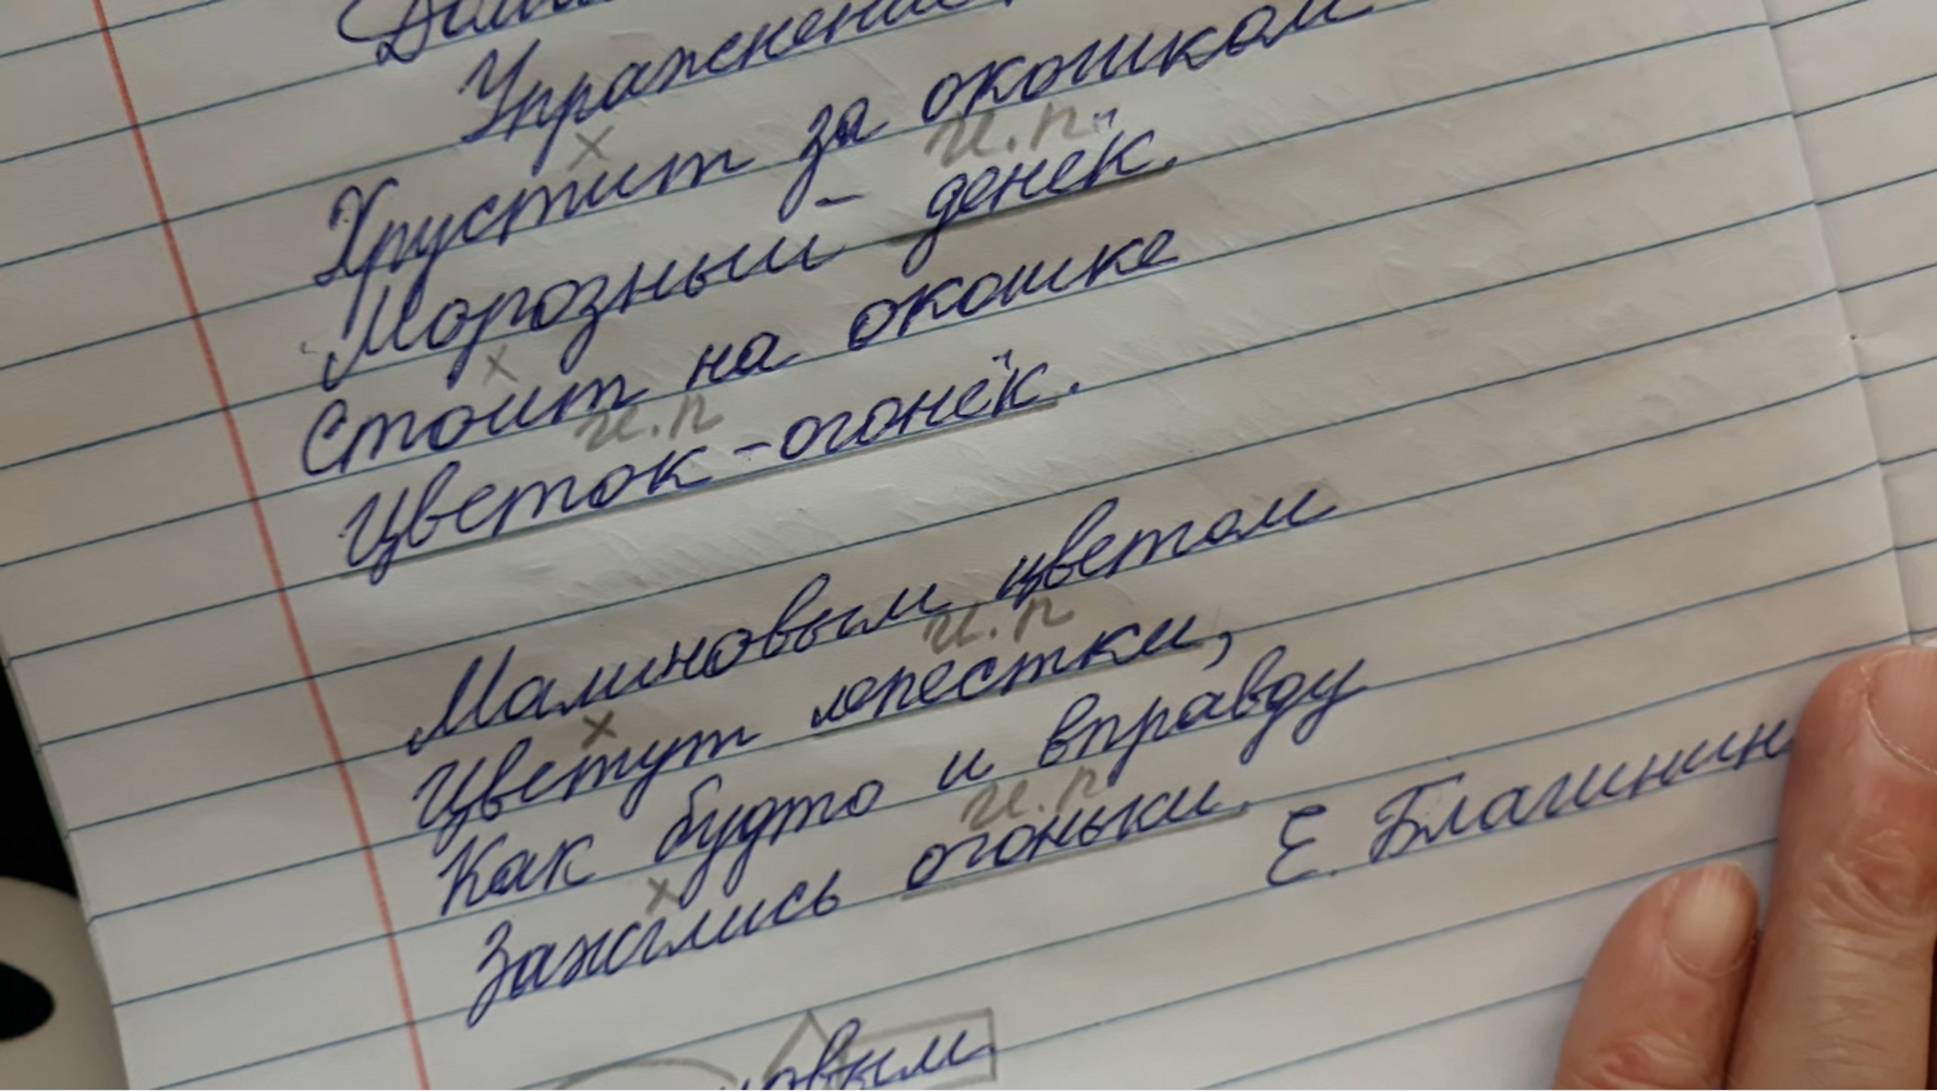 Упражнение
Хрустит за окошком
и.п
Морозный - денёк.
Стоит на окошке
и.п
Цветок - огонёк.
Малиновым цветом
и.п
Цветут лепестки,
Как будто и вправду
и.п
Зажглись огоньки.
Е. Благинин
овым